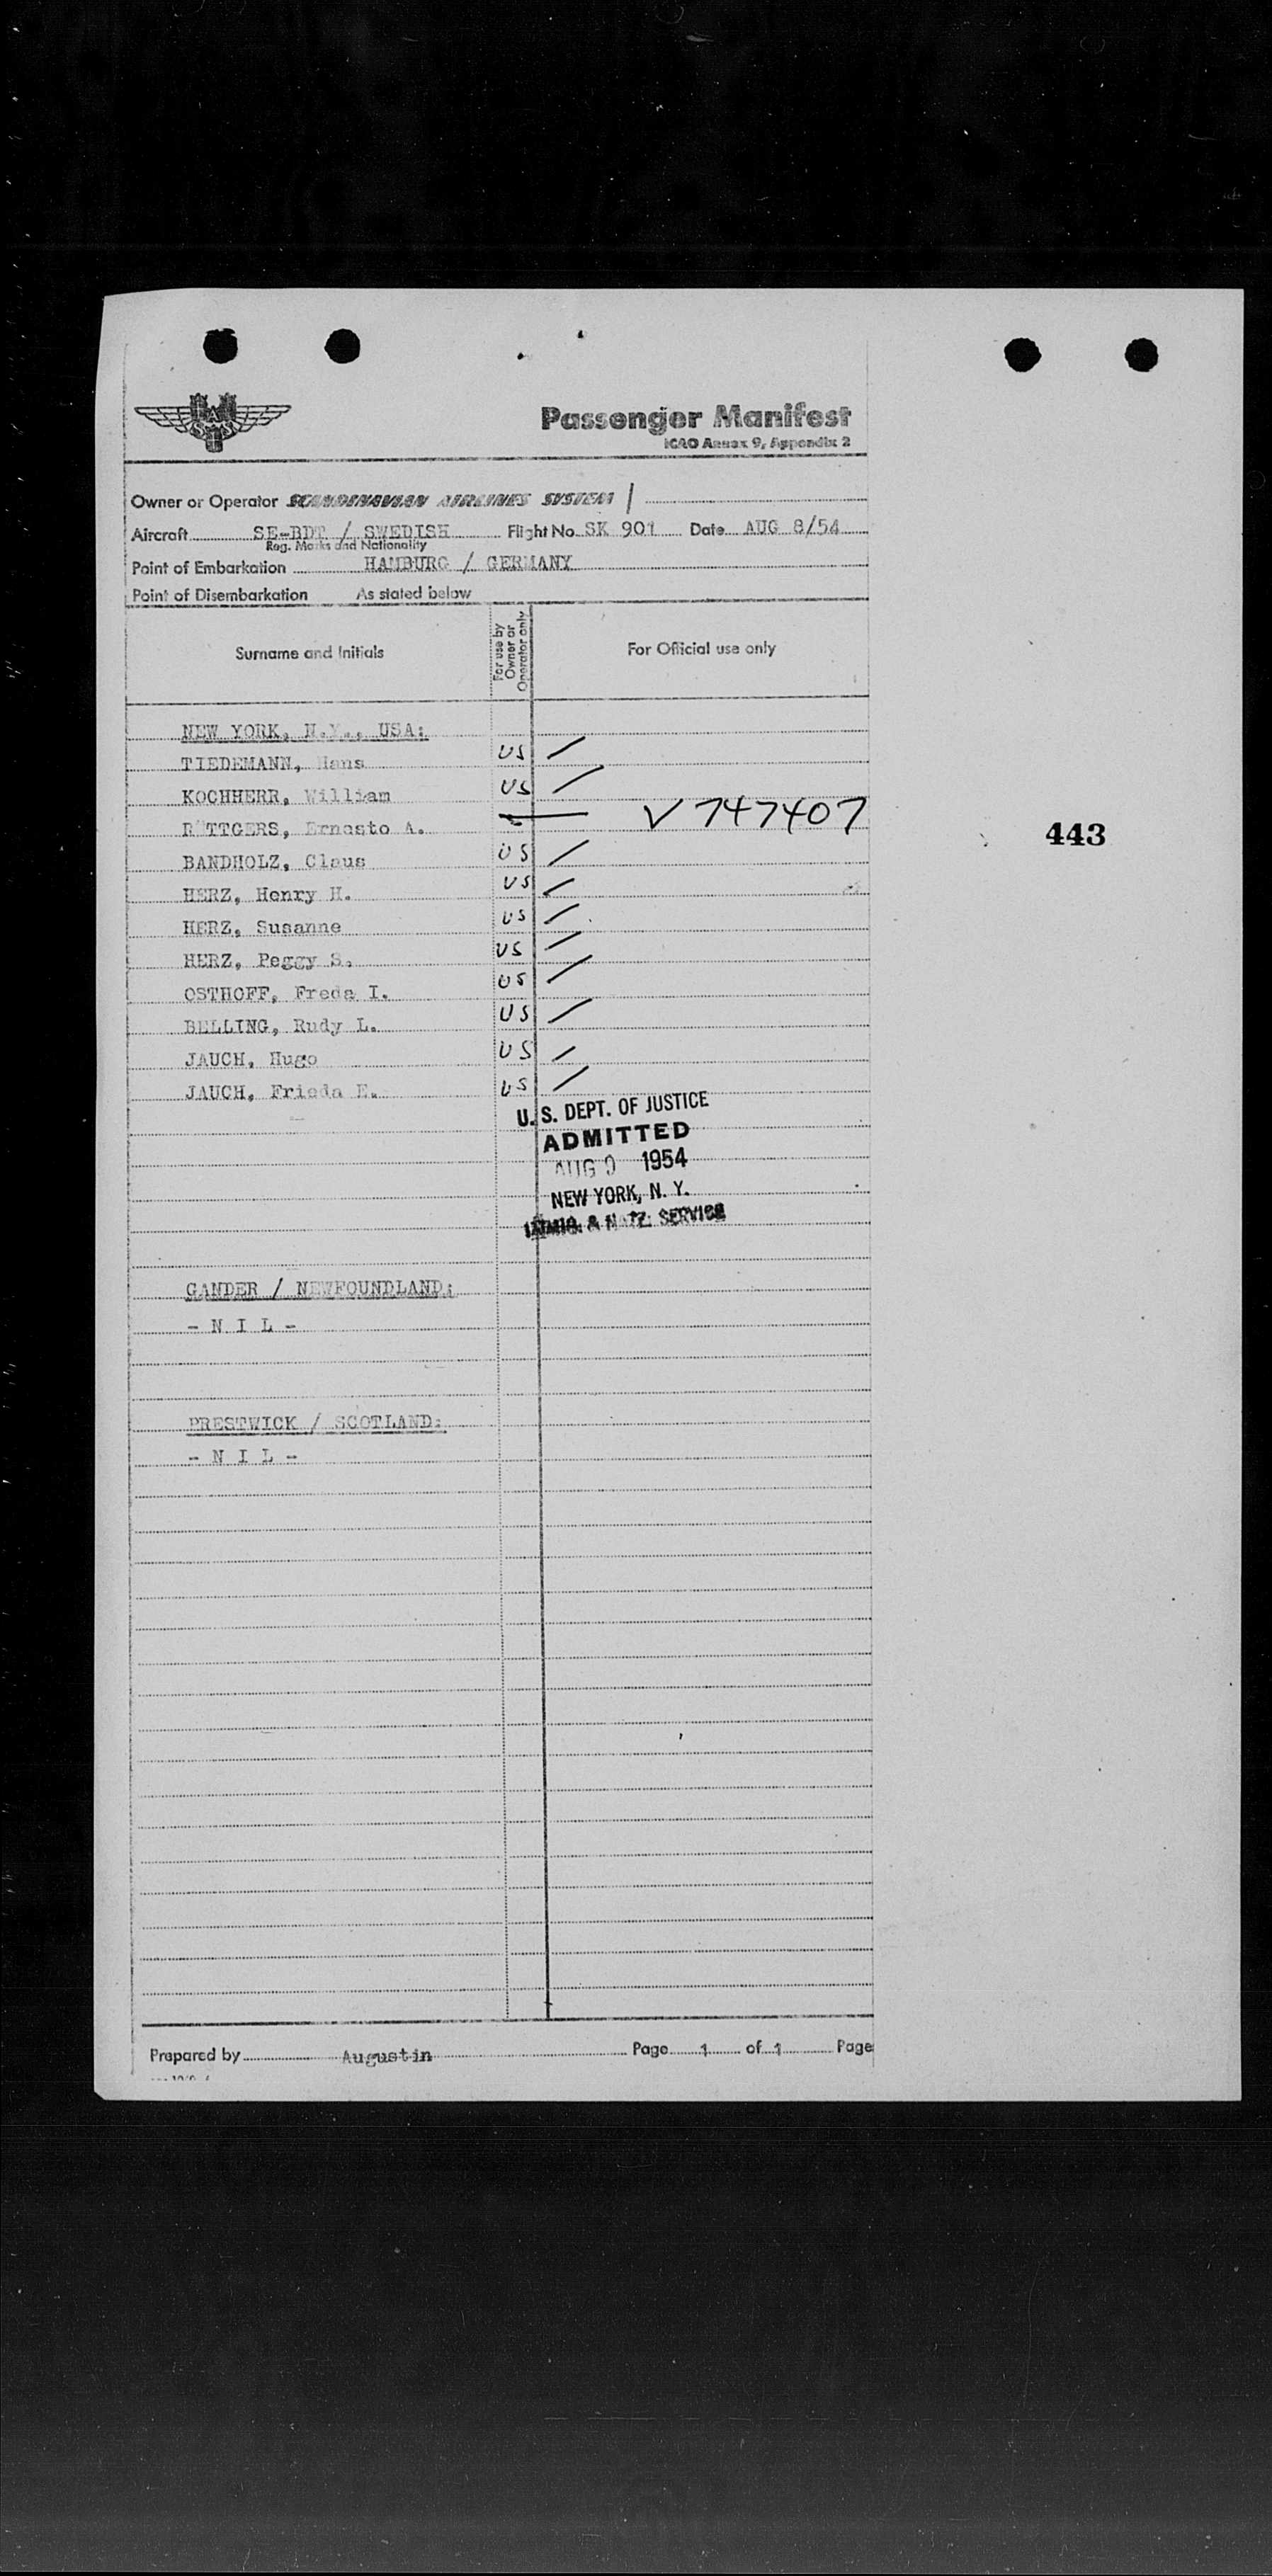 SAS
Passenger Manifest
ICAO Annex 9, Appendix 2
Owner or Operator SCANDINAVIAN AIRLINES SYSTEM /
Aircraft SE-BDT / SWEDISH Flight No. SK 901 Date AUG 8/54
Reg. Marks and Nationality
Point of Embarkation HAMBURG / GERMANY
Point of Disembarkation As stated below
Surname and Initials For use by Owner or Operator only For Official use only
NEW YORK, N.Y., USA:
TIEDEMANN, Hans US /
KOCHHERR, William US /
RÖTTGERS, Ernesto A. — V 747407
443
BANDHOLZ, Claus US /
HERZ, Henry H. US /
HERZ, Susanne US /
HERZ, Peggy S. US /
OSTHOFF, Freda I. US /
BELLING, Rudy L. US /
JAUCH, Hugo US /
JAUCH, Frieda E. US /
U. S. DEPT. OF JUSTICE
ADMITTED
AUG 9 1954
NEW YORK, N. Y.
IMMIG. & NATZ. SERVICE
GANDER / NEWFOUNDLAND:
- N I L -
PRESTWICK / SCOTLAND:
- N I L -
Prepared by Augustin Page 1 of 1 Page